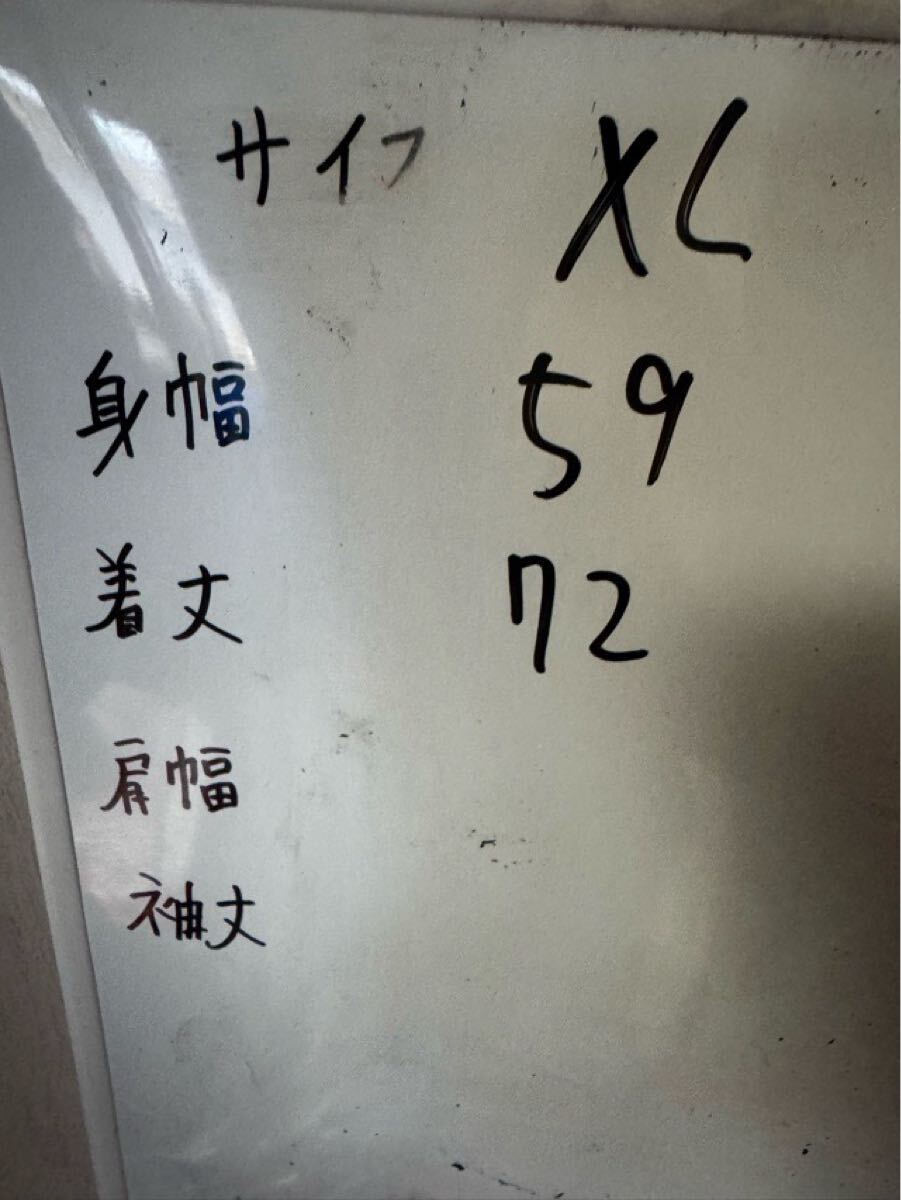 サイズ XL
身幅 59
着丈 72
肩幅
袖丈